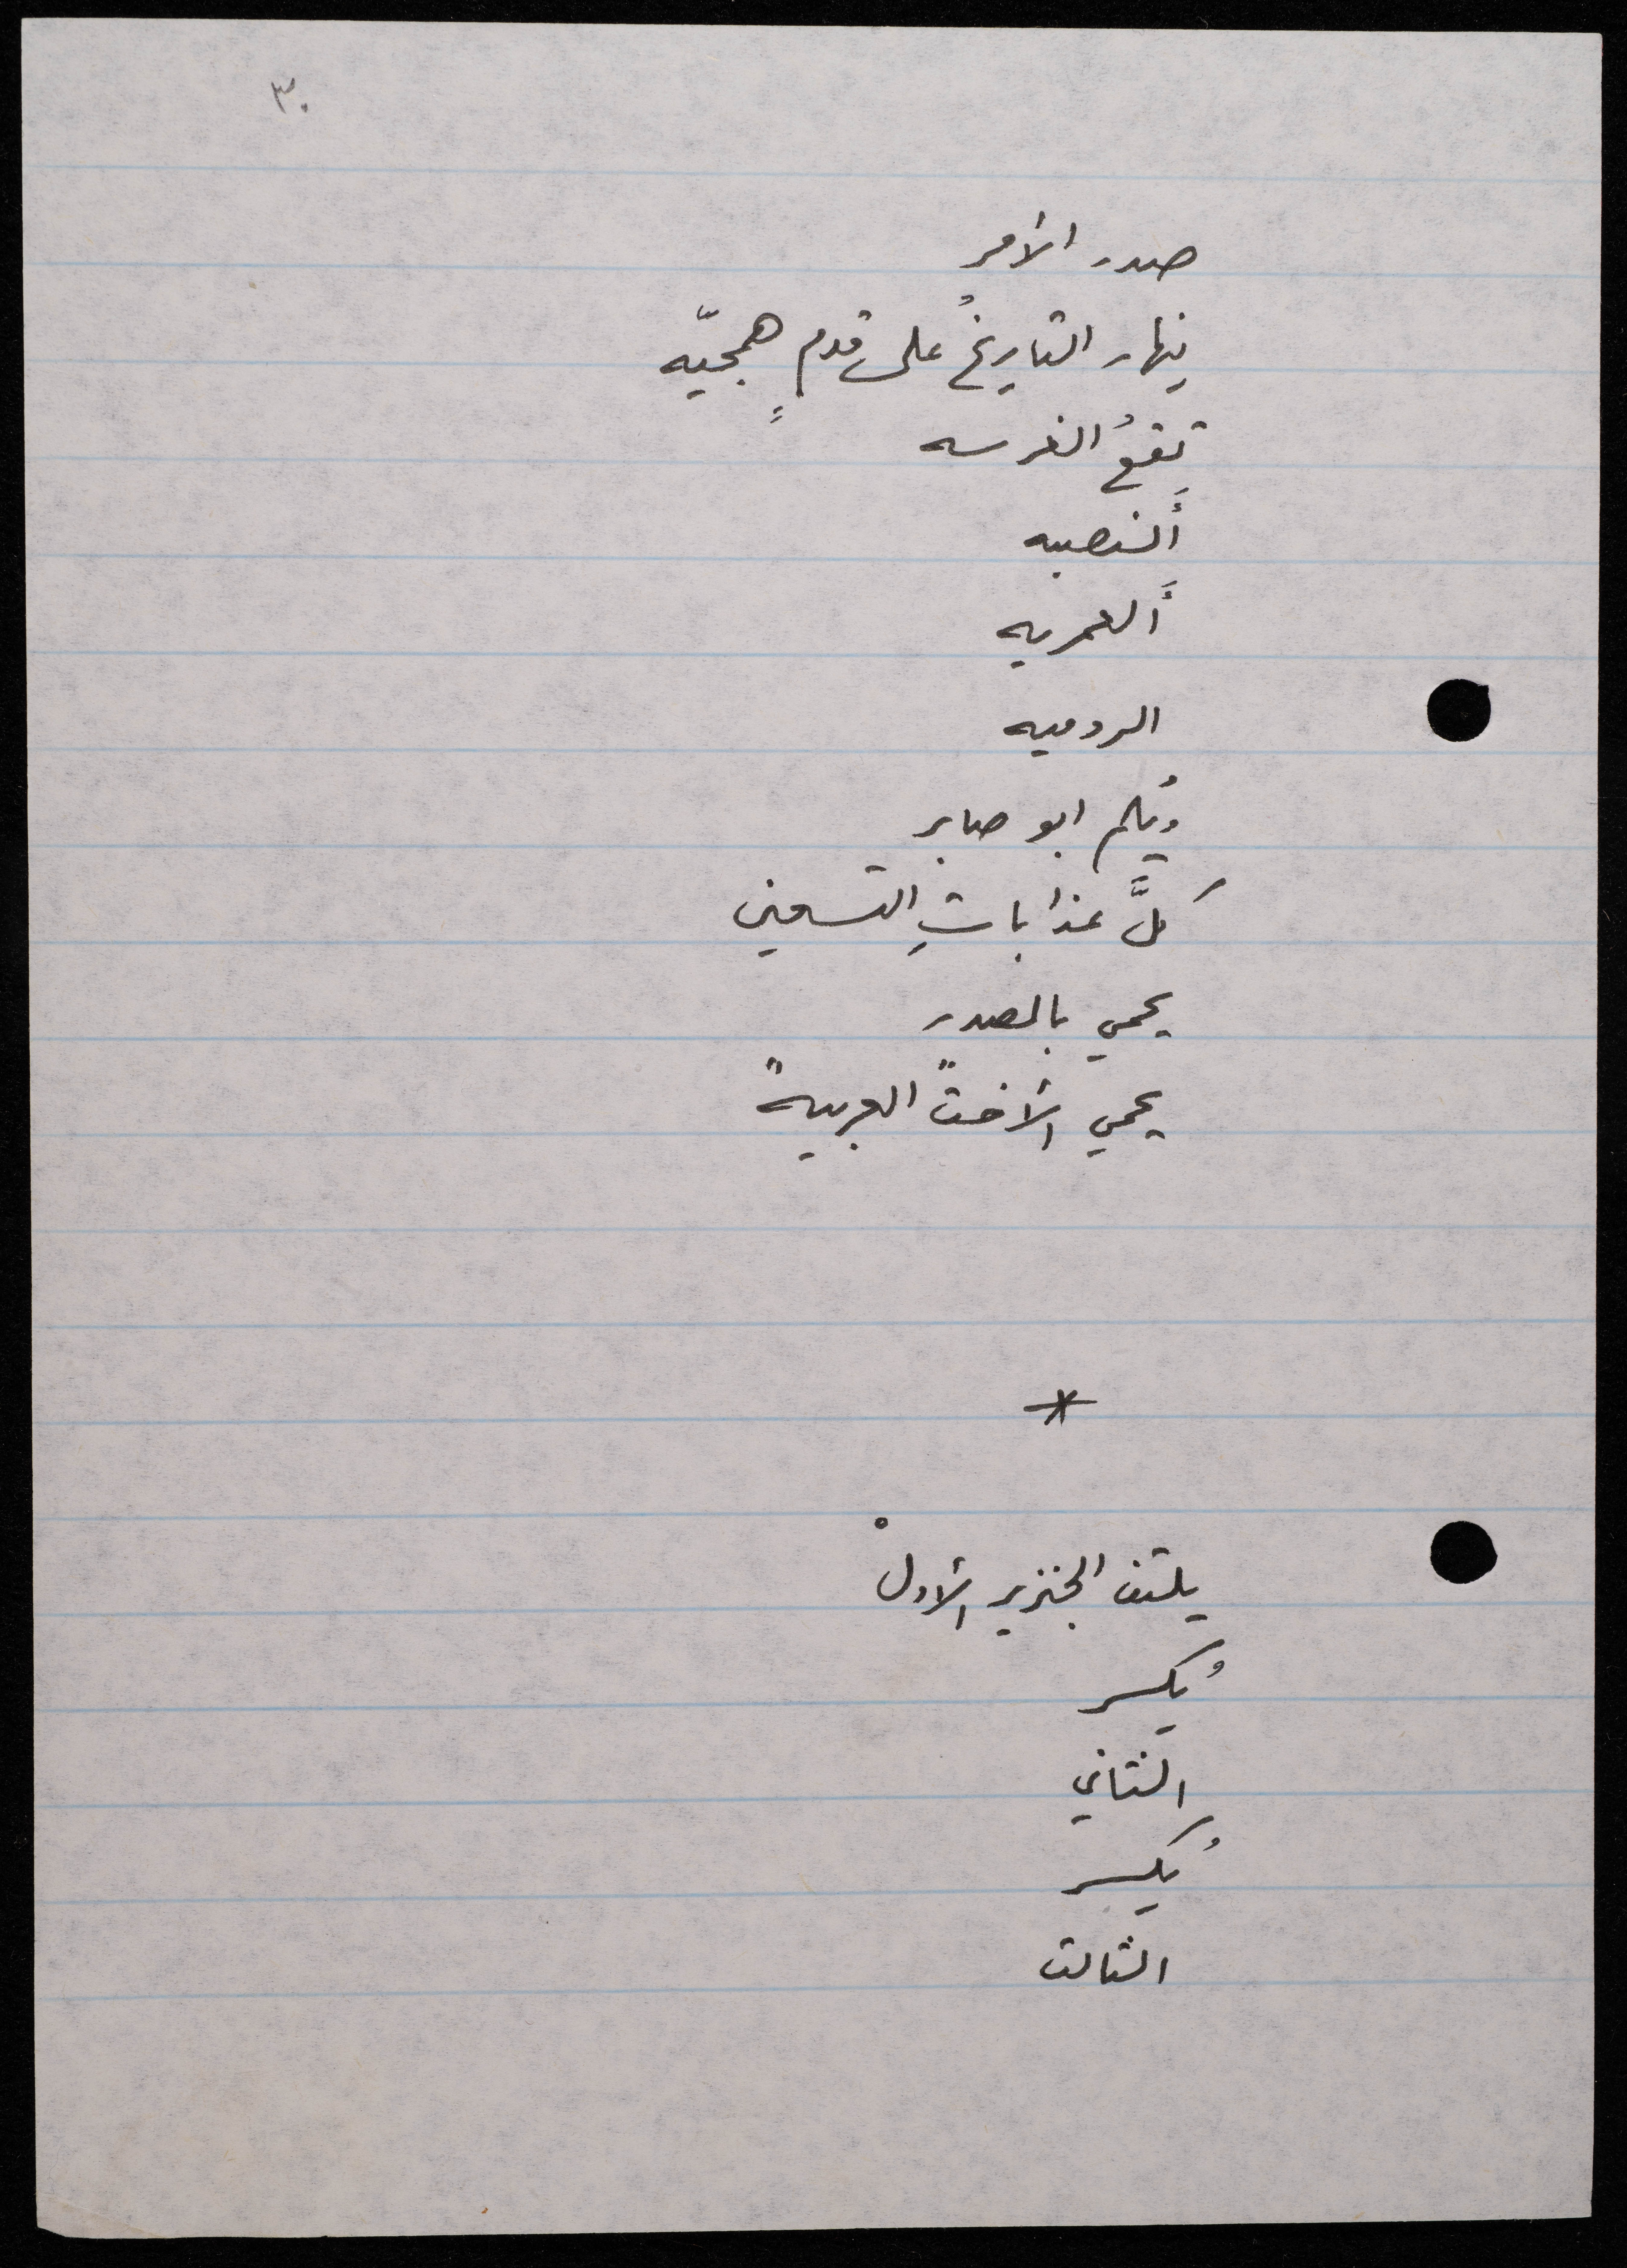 ٣٠
صدر الأمر
ينهار التاريخُ على قدمٍ همجيّه
تقعُ الغرسه
أَلنصبه
أَلعمريه
الروميه
ويُلم ابو صابر
كلَّ عذاباتِ التسعين
يحمي بالصدر
يحمي الأختَ العربيهً
*
يلتف الجنزير الأولْ
يُكسر
الثاني
يُكسر
الثالث